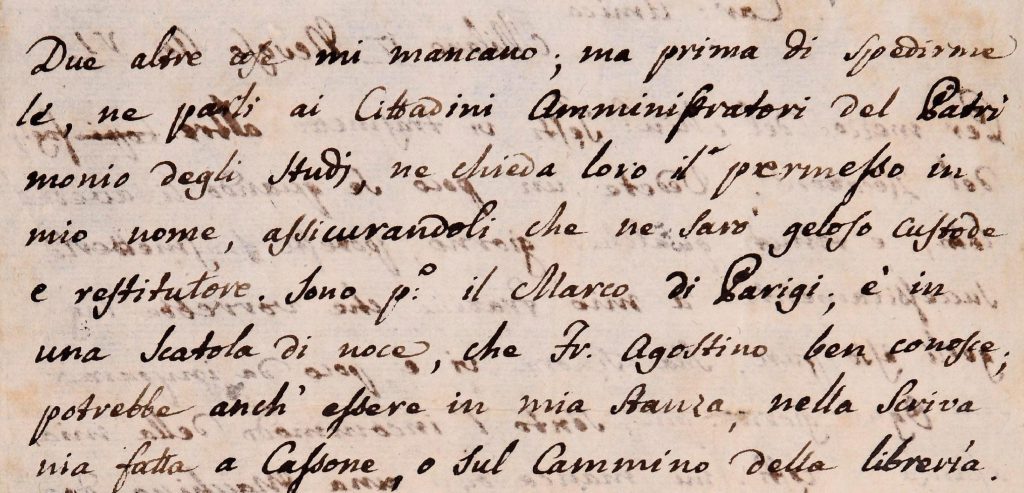 Due altre cose mi mancano; ma prima di spedirme
le, ne parli ai Cittadini Amministratori del Patri
monio degli Studj, ne chieda loro il permesso in
mio nome, assicurandoli che ne sarò geloso custode
e restitutore. Sono p.º il Marco di Parigi; è in
una Scatola di noce, che Fr. Agostino ben conosce;
potrebbe anch' essere in mia stanza, nella Scriva
nia fatta a Cassone, o sul Cammino della libreria.